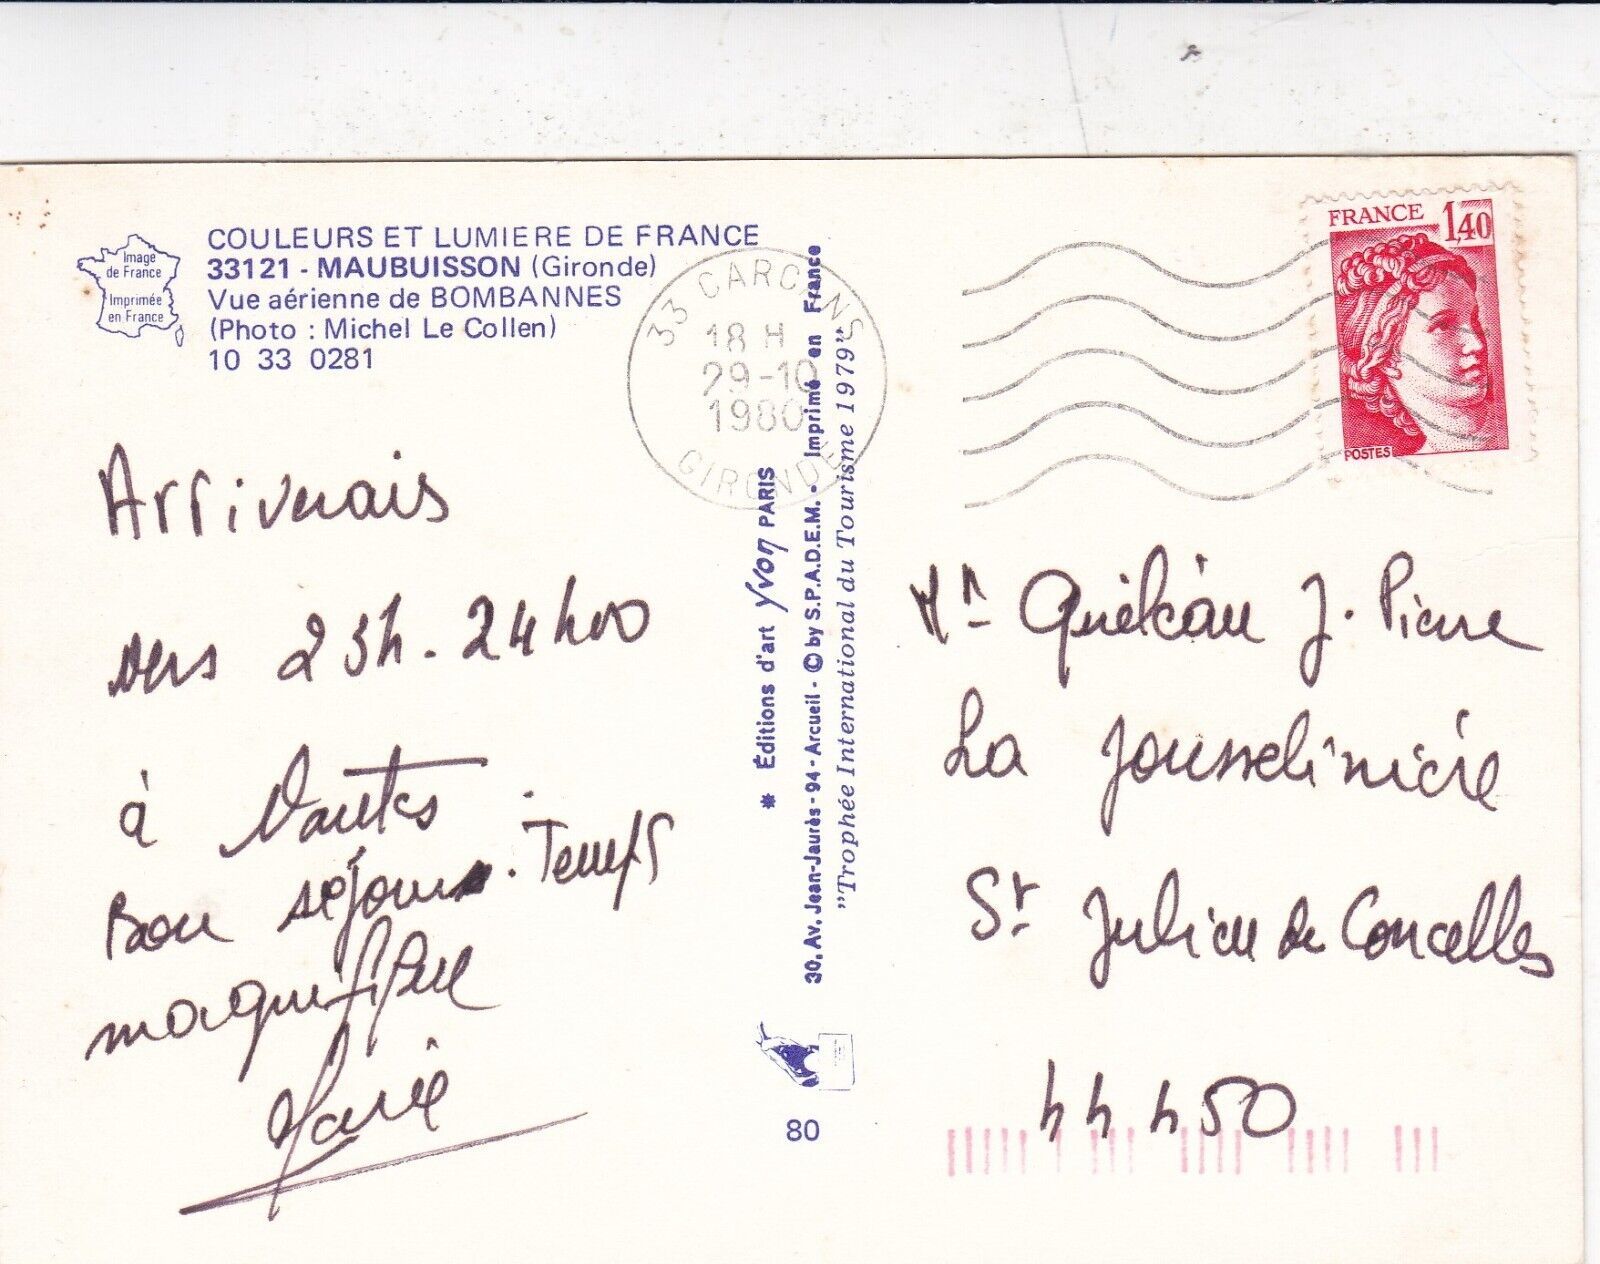 COULEURS ET LUMIERE DE FRANCE
33121 - MAUBUISSON (Gironde)
Vue aérienne de BOMBANNES
(Photo : Michel Le Collen)
10 33 0281
Image
de France
Imprimée
en France
Arriverais
vers 23h. 24h00
à Nantes
Bon séjour. Temps
magnifique
Marie
* Éditions d'art Yvon PARIS
30, Av. Jean-Jaurès - 94 - Arcueil - © by S.P.A.D.E.M. - Imprimé en France
"Trophée International du Tourisme 1979"
80
33 CARCANS
18 H
29-10
1980
GIRONDE
FRANCE 1,40
POSTES
Mr J. Pierre
La Jousselinière
St Julien de Concelles
44 450